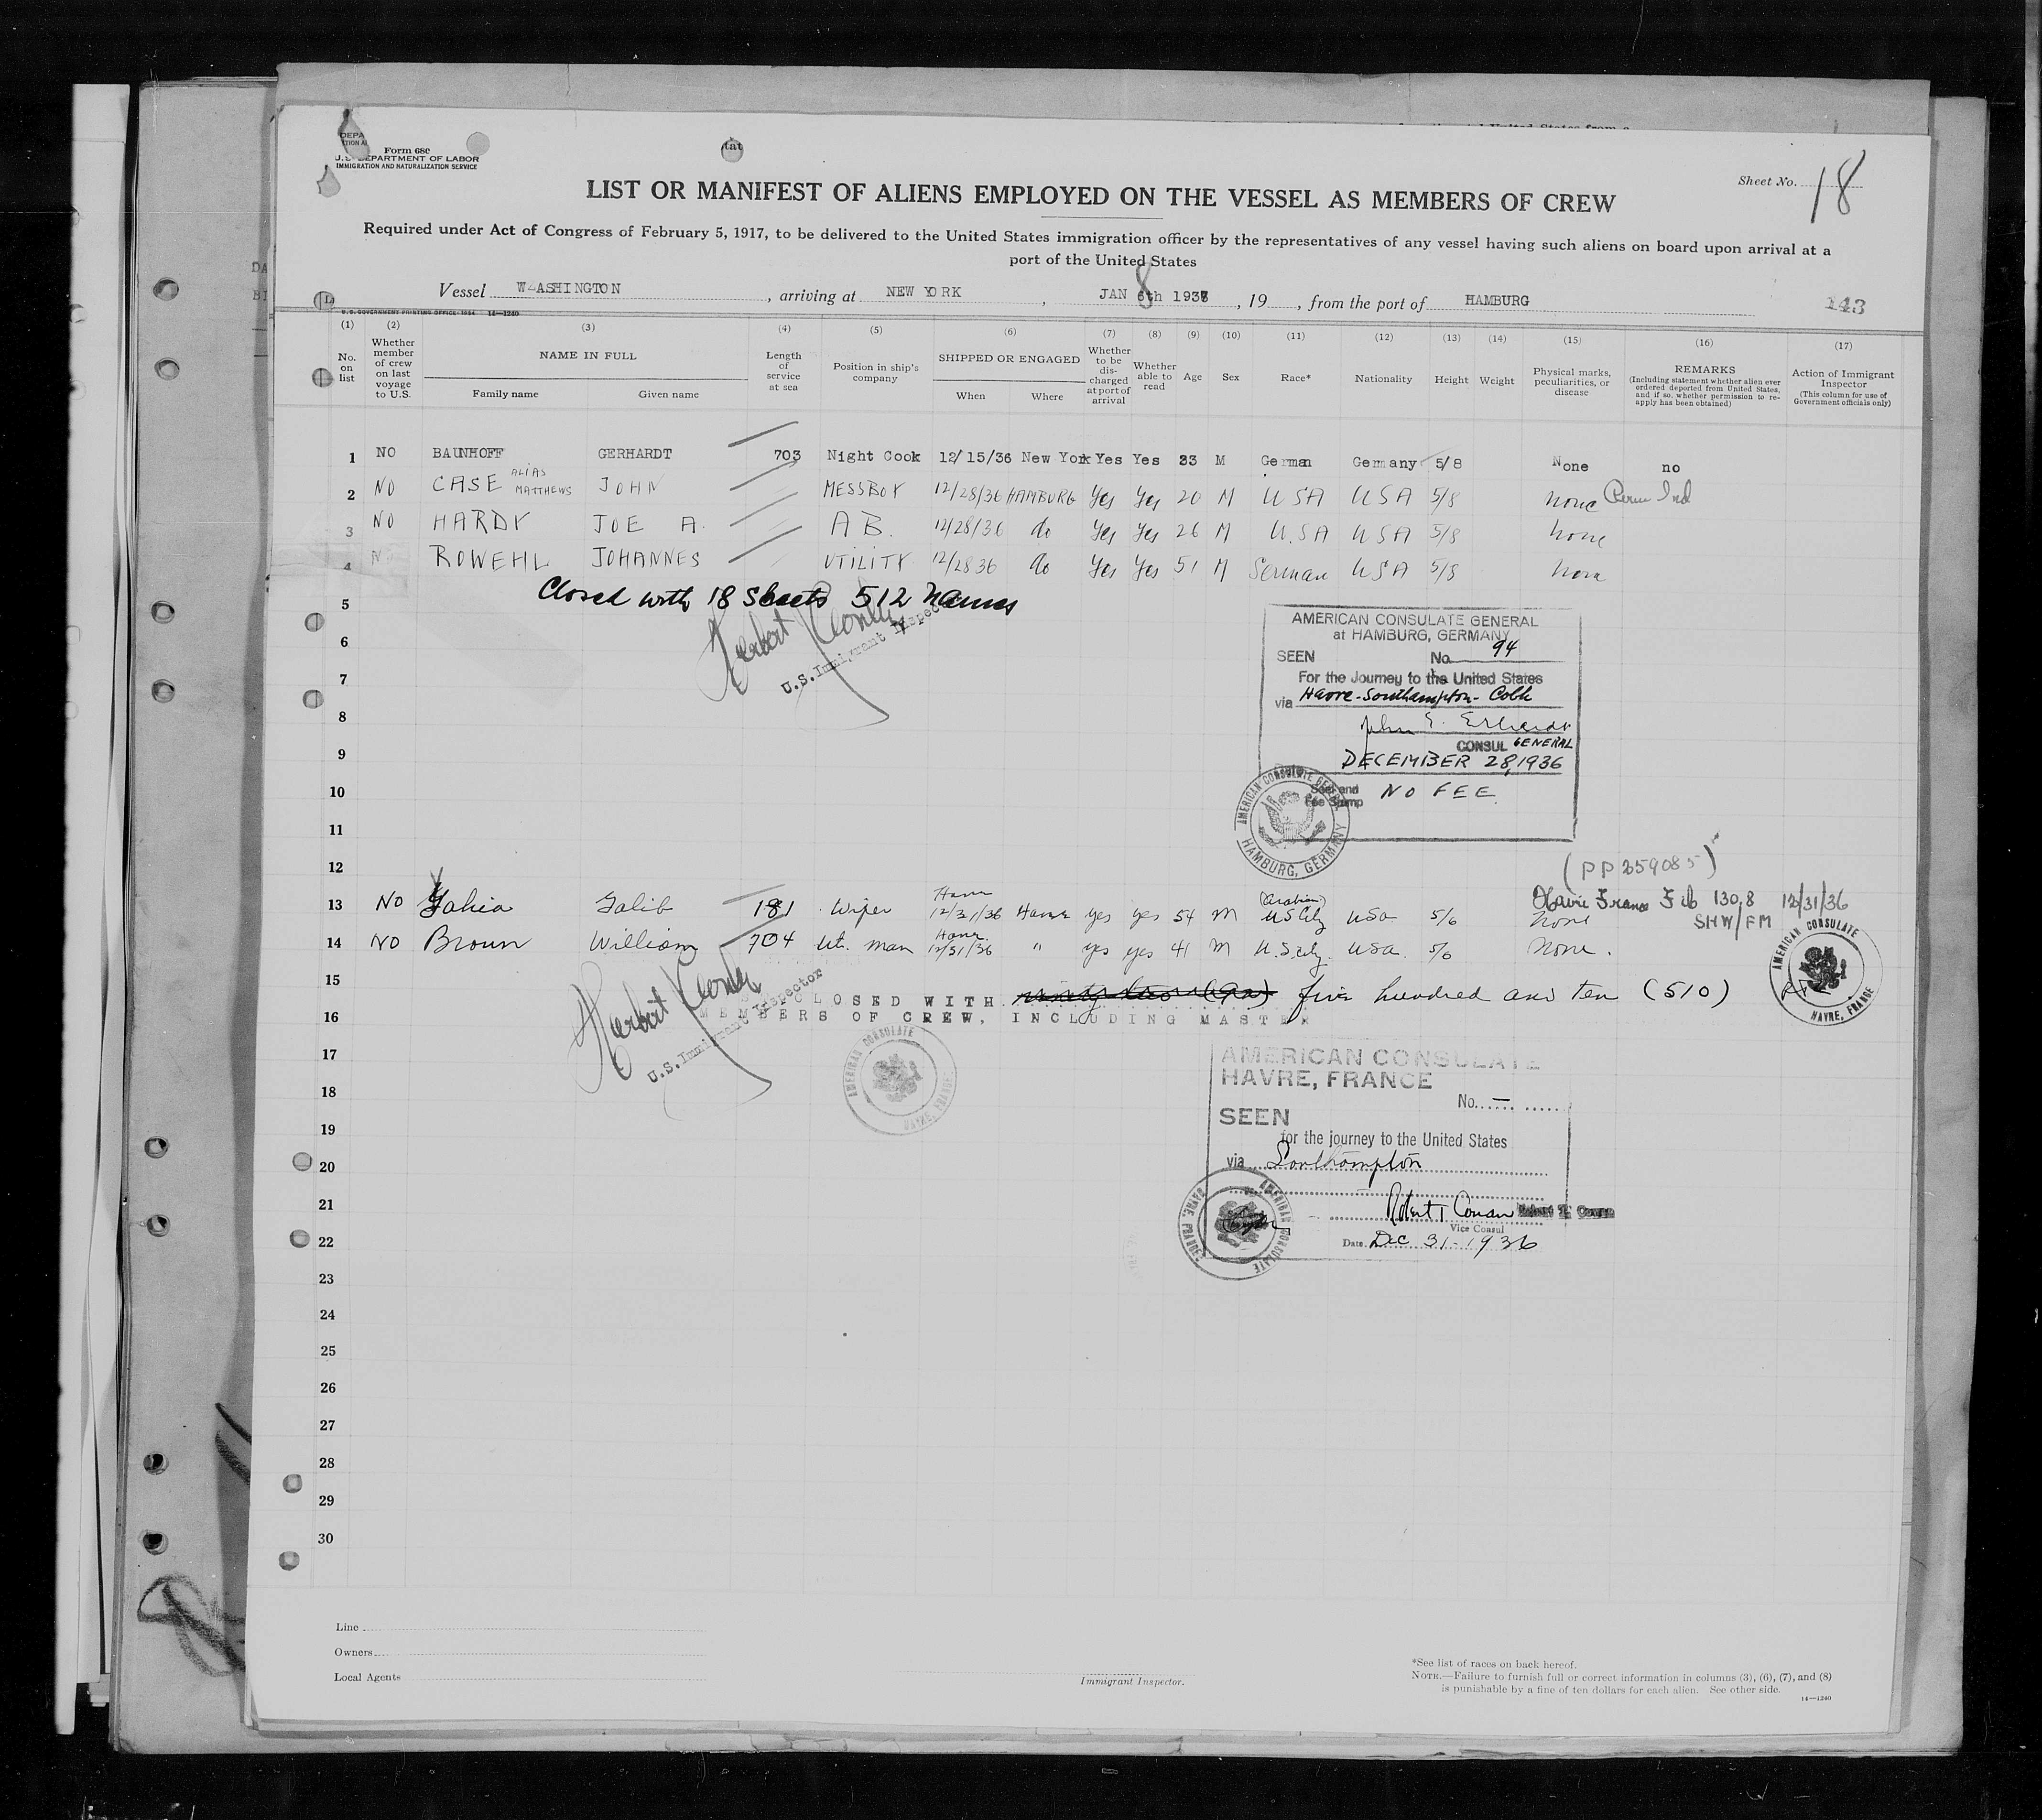 DEPA
TION A
Form 680
U.S. DEPARTMENT OF LABOR
IMMIGRATION AND NATURALIZATION SERVICE
tat
Sheet No. 18
LIST OR MANIFEST OF ALIENS EMPLOYED ON THE VESSEL AS MEMBERS OF CREW
Required under Act of Congress of February 5, 1917, to be delivered to the United States immigration officer by the representatives of any vessel having such aliens on board upon arrival at a
port of the United States
Vessel WASHINGTON, arriving at NEW YORK, JAN 8th 1937, 19, from the port of HAMBURG
143
U.S. GOVERNMENT PRINTING OFFICE: 1934 14—1240
(1) (2) (3) (4) (5) (6) (7) (8) (9) (10) (11) (12) (13) (14) (15) (16) (17)
No. on list
Whether member of crew on last voyage to U.S.
NAME IN FULL
Family name
Given name
Length of service at sea
Position in ship's company
SHIPPED OR ENGAGED
When
Where
Whether to be discharged at port of arrival
Whether able to read
Age
Sex
Race*
Nationality
Height
Weight
Physical marks, peculiarities, or disease
REMARKS
(Including statement whether alien ever ordered deported from United States, and if so, whether permission to reapply has been obtained)
Action of Immigrant Inspector
(This column for use of Government officials only)
1 NO BAUNHOFF GERHARDT 703 Night Cook 12/15/36 New York Yes Yes 33 M German Germany 5/8 None no
2 NO CASE ALIAS MATTHEWS JOHN MESSBOY 12/28/36 HAMBURG Yes Yes 20 M USA USA 5/8 none
3 NO HARDY JOE A. A B. 12/28/36 do Yes Yes 26 M U.SA USA 5/8 none
4 N ROWEHL JOHANNES UTILITY 12/28 36 do Yes Yes 51 M German USA 5/8 none
5 Closed with 18 sheets 512 names
6
U.S. Immigrant Inspector
7
8
9
10
11
12
AMERICAN CONSULATE GENERAL
at HAMBURG, GERMANY
SEEN No. 94
For the Journey to the United States
via Havre-Southampton-Cobh
John E. Erhardt
CONSUL GENERAL
DECEMBER 28, 1936
Seal and Fee Stamp NO FEE
AMERICAN CONSULATE GENERAL HAMBURG, GERMANY
(PP 359085)
Havre France 1308 12/31/36
SHW/FM
13 NO Yahia Galib 181 Wiper 12/31/36 Havre yes yes 54 M (Arabian) US City USA 5/6 none
14 NO Broun William 704 Ut. man 12/31/36 " yes yes 41 M U.S City. USA. 5/6 None.
AMERICAN CONSULATE HAVRE, FRANCE
15 CLOSED WITH ninety two (92) five hundred and ten (510)
16 MEMBERS OF CREW, INCLUDING MASTER
U.S. Immigrant Inspector
AMERICAN CONSULATE HAVRE, FRANCE
17
18
19
20
21
22
AMERICAN CONSULATE
HAVRE, FRANCE
No. —
SEEN
for the journey to the United States
via Southampton
Vice Consul
Date Dec 31-1936
AMERICAN CONSULATE HAVRE, FRANCE
23
24
25
26
27
28
29
30
Line
Owners
Local Agents
Immigrant Inspector.
*See list of races on back hereof.
NOTE.—Failure to furnish full or correct information in columns (3), (6), (7), and (8)
is punishable by a fine of ten dollars for each alien. See other side.
14—1240